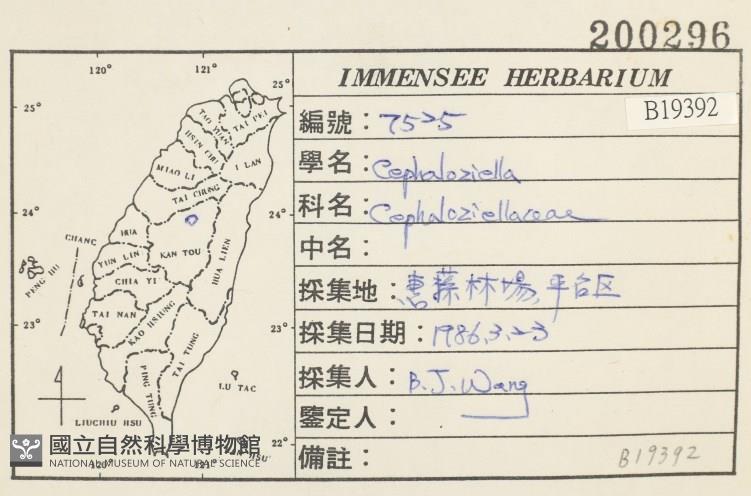 200296
IMMENSEE HERBARIUM
B19392
編號：7525
學名：Cephaloziella
科名：Cephaloziellaceae
中名：
採集地：惠蓀林場，平台区
採集日期：1986.3.23
採集人：B.J. Wang
鑒定人：
備註：
B19392
120°
121°
25°
25°
TAO YUAN
TAI PEI
HSIN CHU
I LAN
MIAO LI
TAI CHUNG
24°
24°
CHANG
HUA
YUN LIN
KAN TOU
HUA LIEN
PENG HU
CHIA YI
TAI NAN
KAO HSIUNG
23°
23°
TAI TUNG
PING TUNG
LU TAO
LIUCHIU HSU
22°
120°
121°
HSU
國立自然科學博物館
NATIONAL MUSEUM OF NATURAL SCIENCE